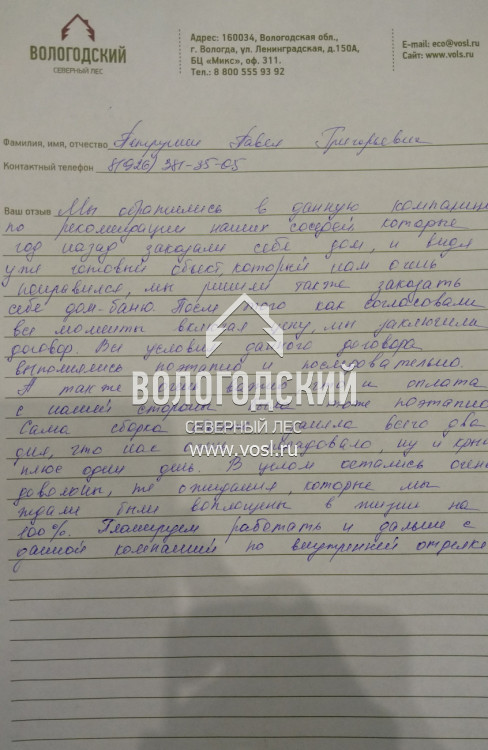 ВОЛОГОДСКИЙ
СЕВЕРНЫЙ ЛЕС
Адрес: 160034, Вологодская обл.,
г. Вологда, ул. Ленинградская, д.150А,
БЦ «Микс», оф. 311.
Тел.: 8 800 555 93 92
E-mail: eco@vosl.ru
Сайт: www.vols.ru
Фамилия, имя, отчество Павел Григорьевич
Контактный телефон 8(926) 381-35-05
Ваш отзыв Мы обратились в данную компанию
по рекомендации наших соседей которые
год назад заказали себе дом, и видя
уже готовый объект, который нам очень
понравился, мы решили также заказать
себе дом-баню. После того как согласовали
все моменты включая цену, мы заключили
договор. Все условия данного договора
выполнялись поэтапно и последовательно.
А также и оплата
с нашей стороны тоже поэтапно
Сама сборка всего два
дня, что нас ну и
плюс один день. В целом остались очень
довольны, те ожидания, которые мы
ждали были воплощены в жизни на
100%. Планируем работать и дальше с
данной компанией по внутренней отделке
ВОЛОГОДСКИЙ
СЕВЕРНЫЙ ЛЕС
www.vosl.ru
ВОЛОГОДСКИЙ
СЕВЕРНЫЙ ЛЕС
www.vosl.ru